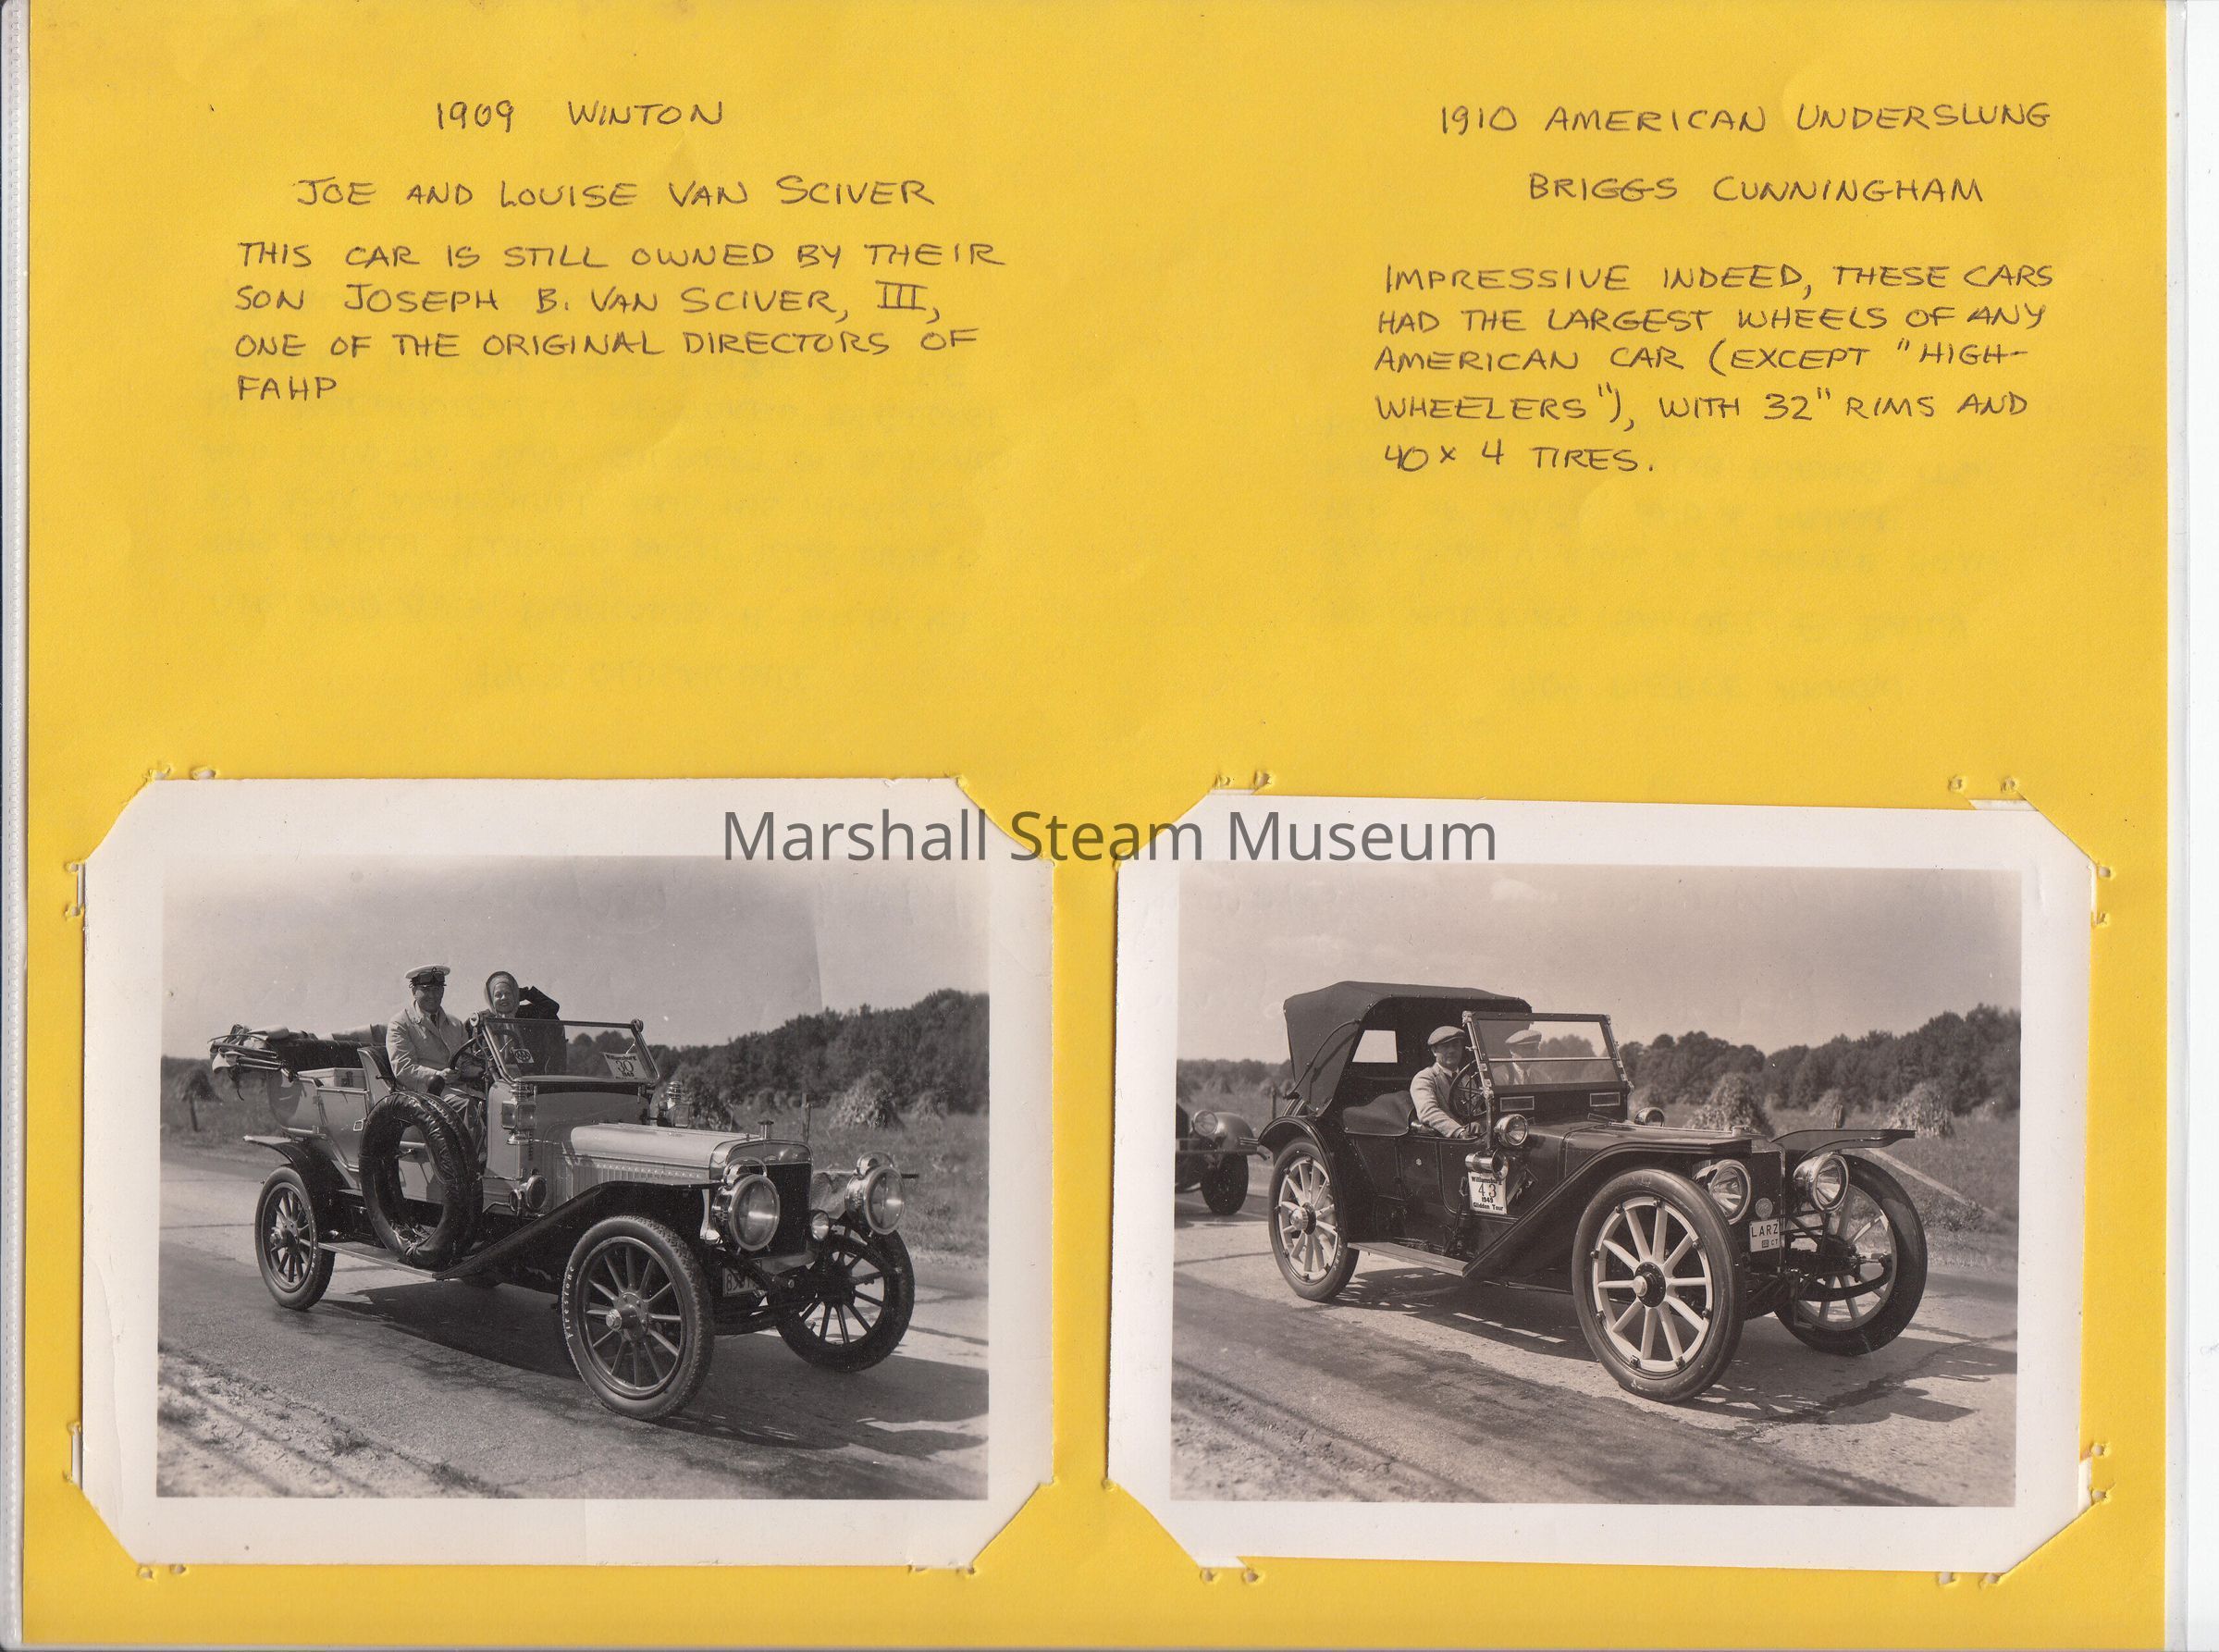 1909 WINTON
JOE AND LOUISE VAN SCIVER
THIS CAR IS STILL OWNED BY THEIR
SON JOSEPH B. VAN SCIVER, III,
ONE OF THE ORIGINAL DIRECTORS OF
FAHP
1910 AMERICAN UNDERSLUNG
BRIGGS CUNNINGHAM
IMPRESSIVE INDEED, THESE CARS
HAD THE LARGEST WHEELS OF ANY
AMERICAN CAR (EXCEPT "HIGH-
WHEELERS"), WITH 32" RIMS AND
40 x 4 TIRES.
Marshall Steam Museum
Williamsburg
30
1949
Firestone
Williamsburg
43
1949
Glidden Tour
LARZ
CT